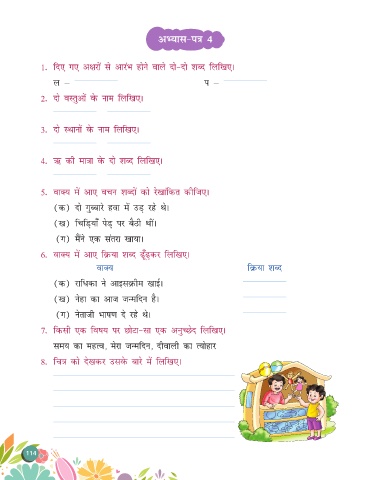 अभ्यास-पत्र 4
1. दिए गए अक्षरों से आरंभ होने वाले दो-दो शब्द लिखिए।
ल – प –
2. दो वस्तुओं के नाम लिखिए।
3. दो स्थानों के नाम लिखिए।
4. ऋ की मात्रा के दो शब्द लिखिए।
5. वाक्य में आए वचन शब्दों को रेखांकित कीजिए।
(क) दो गुब्बारे हवा में उड़ रहे थे।
(ख) चिड़ियाँ पेड़ पर बैठी थीं।
(ग) मैंने एक संतरा खाया।
6. वाक्य में आए क्रिया शब्द ढूँढ़कर लिखिए।
वाक्य क्रिया शब्द
(क) राधिका ने आइसक्रीम खाई।
(ख) नेहा का आज जन्मदिन है।
(ग) नेताजी भाषण दे रहे थे।
7. किसी एक विषय पर छोटा-सा एक अनुच्छेद लिखिए।
समय का महत्व, मेरा जन्मदिन, दीवाली का त्योहार
8. चित्र को देखकर उसके बारे में लिखिए।
114